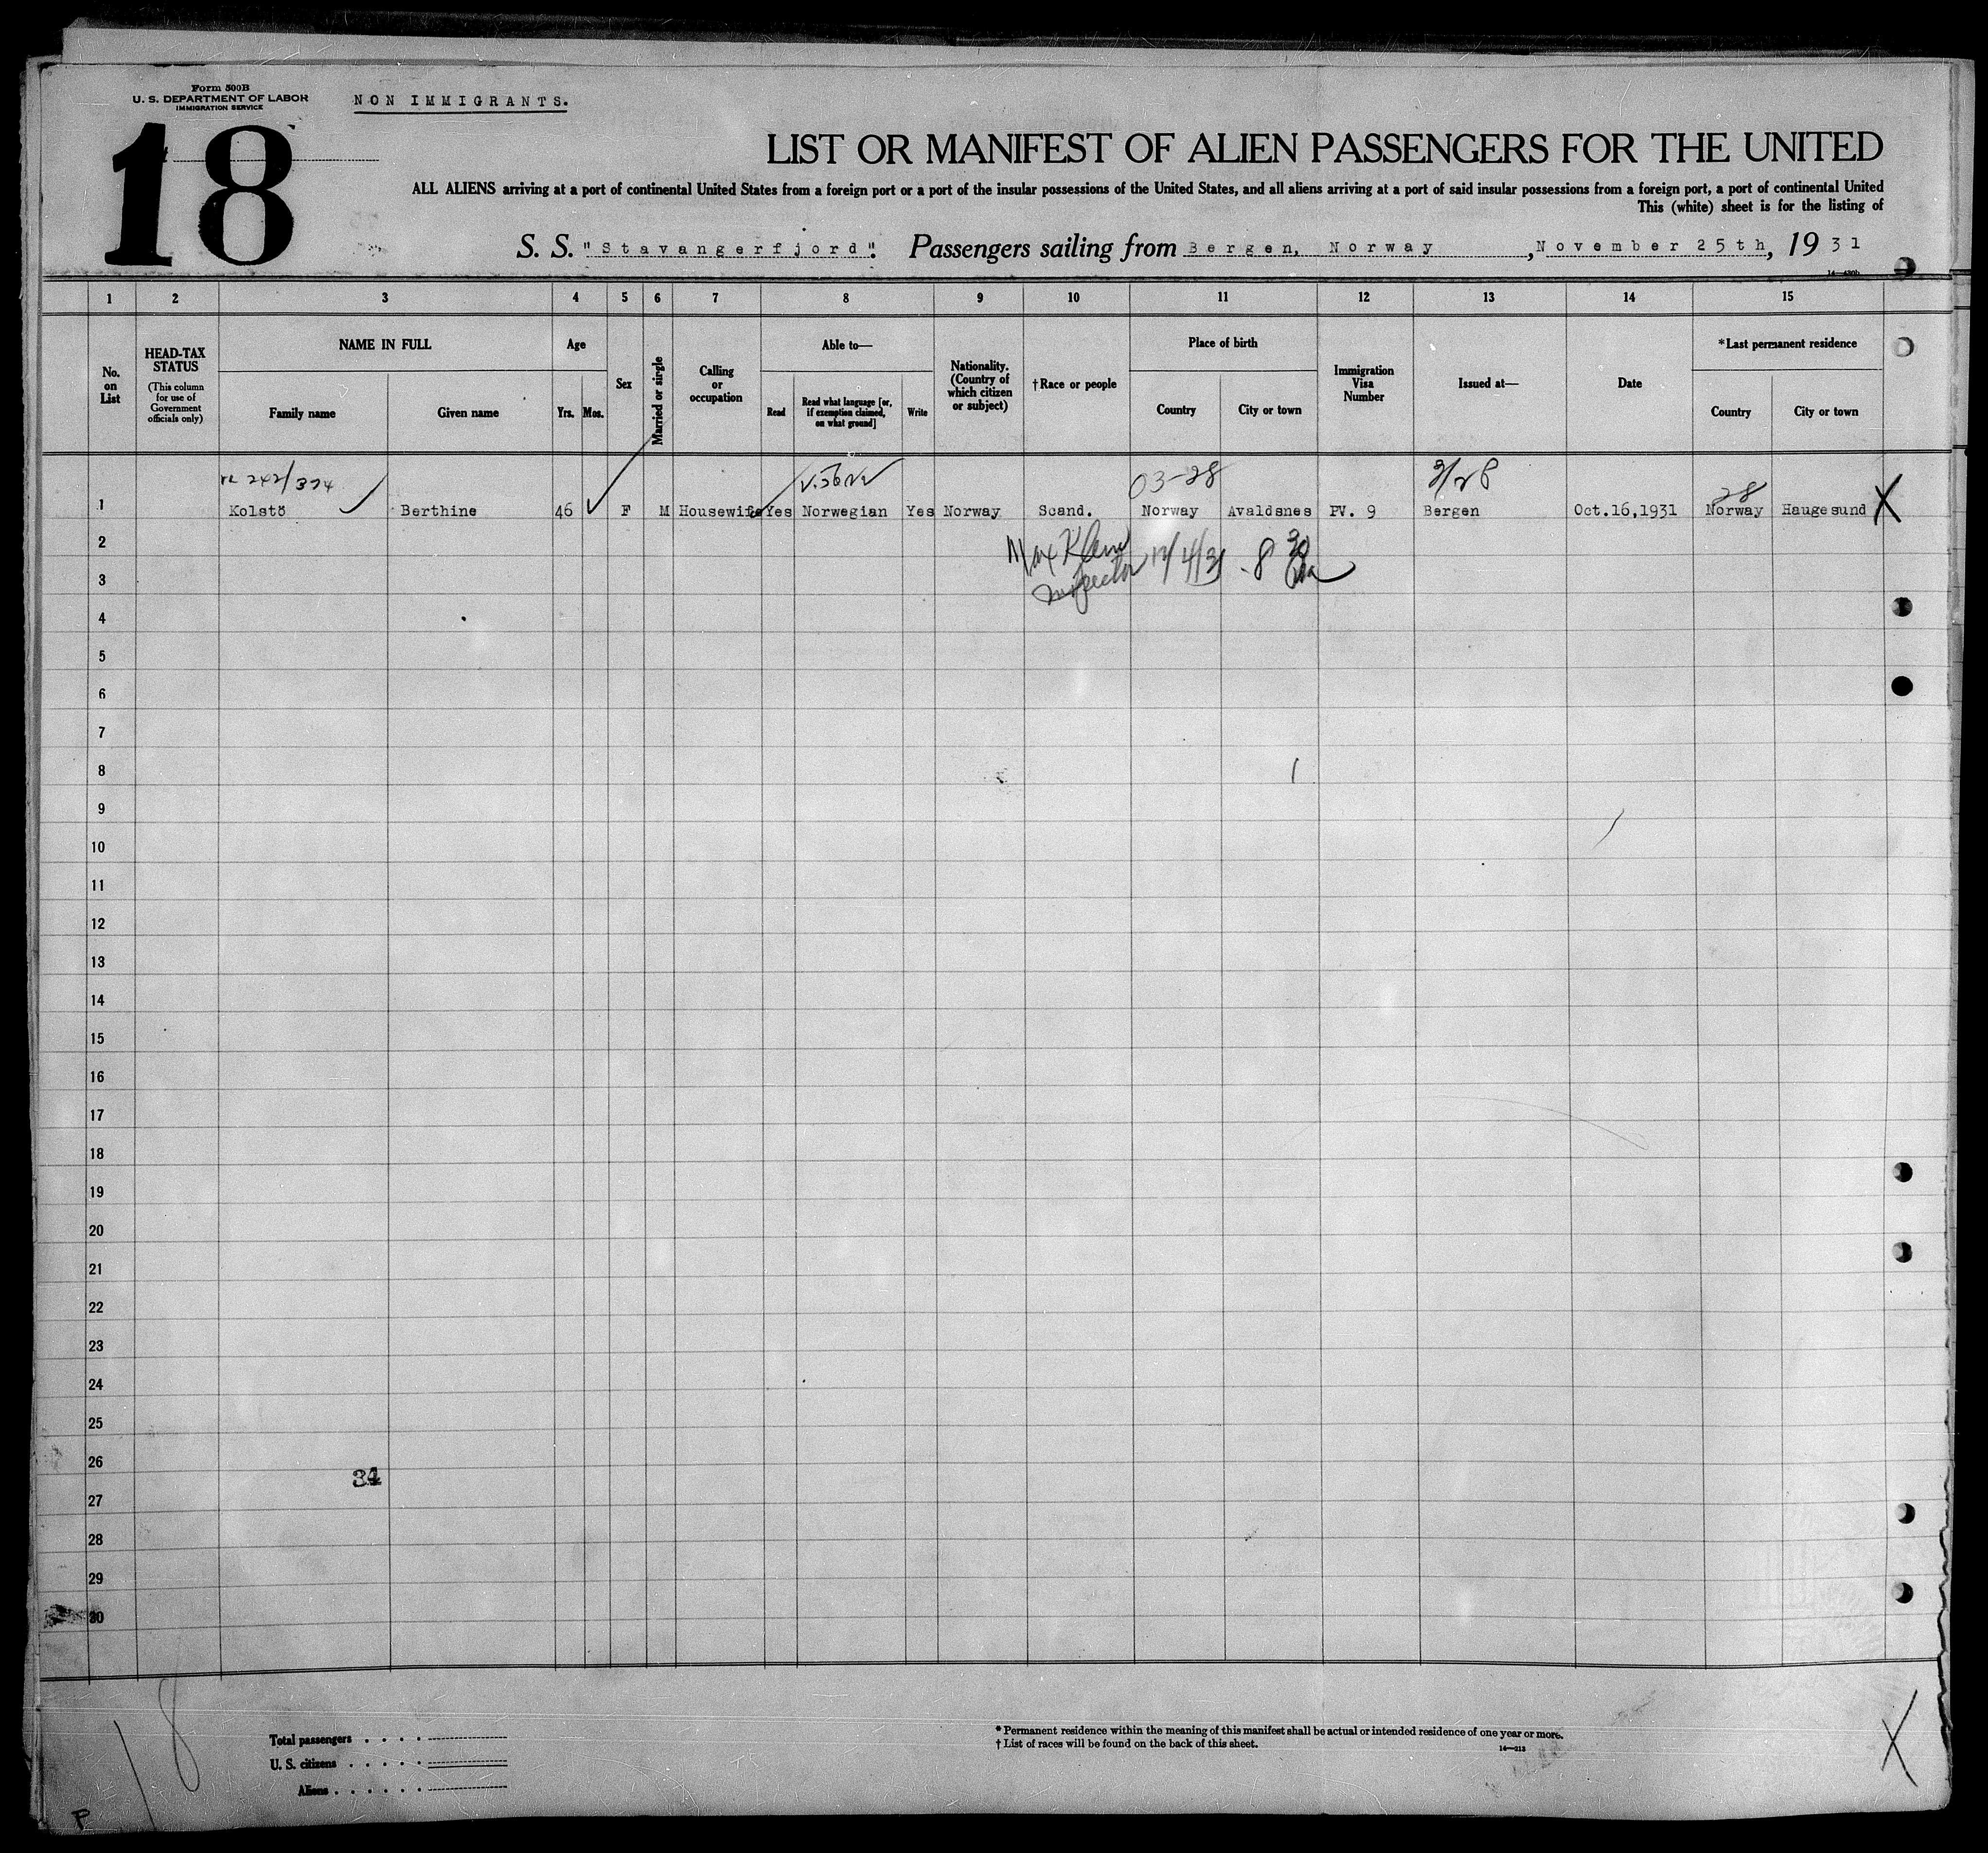 Form 500B
U. S. DEPARTMENT OF LABOR
IMMIGRATION SERVICE
NON IMMIGRANTS.
18
LIST OR MANIFEST OF ALIEN PASSENGERS FOR THE UNITED
ALL ALIENS arriving at a port of continental United States from a foreign port or a port of the insular possessions of the United States, and all aliens arriving at a port of said insular possessions from a foreign port, a port of continental United
This (white) sheet is for the listing of
S. S. "Stavangerfjord". Passengers sailing from Bergen, Norway, November 25th, 1931
1 2 3 4 5 6 7 8 9 10 11 12 13 14 15
No. on List
HEAD-TAX STATUS
(This column for use of Government officials only)
NAME IN FULL
Family name
Given name
Age
Yrs. Mos.
Sex
Married or single
Calling or occupation
Able to—
Read
Read what language [or, if exemption claimed, on what ground]
Write
Nationality. (Country of which citizen or subject)
†Race or people
Place of birth
Country
City or town
Immigration Visa Number
Issued at—
Date
*Last permanent residence
Country
City or town
242/374
03-28
28
1 Kolstö Berthine 46 F M Housewife Yes Norwegian Yes Norway Scand. Norway Avaldsnes PV. 9 Bergen Oct.16,1931 Norway Haugesund X
2
Inspector 12/4/31
3
4
5
6
7
8
9
10
11
12
13
14
15
16
17
18
19
20
21
22
23
24
25
26
34
27
28
29
30
18
Total passengers . . . .
U. S. citizens . . . . .
Aliens . . . . . .
* Permanent residence within the meaning of this manifest shall be actual or intended residence of one year or more.
† List of races will be found on the back of this sheet.
14—213
X
P